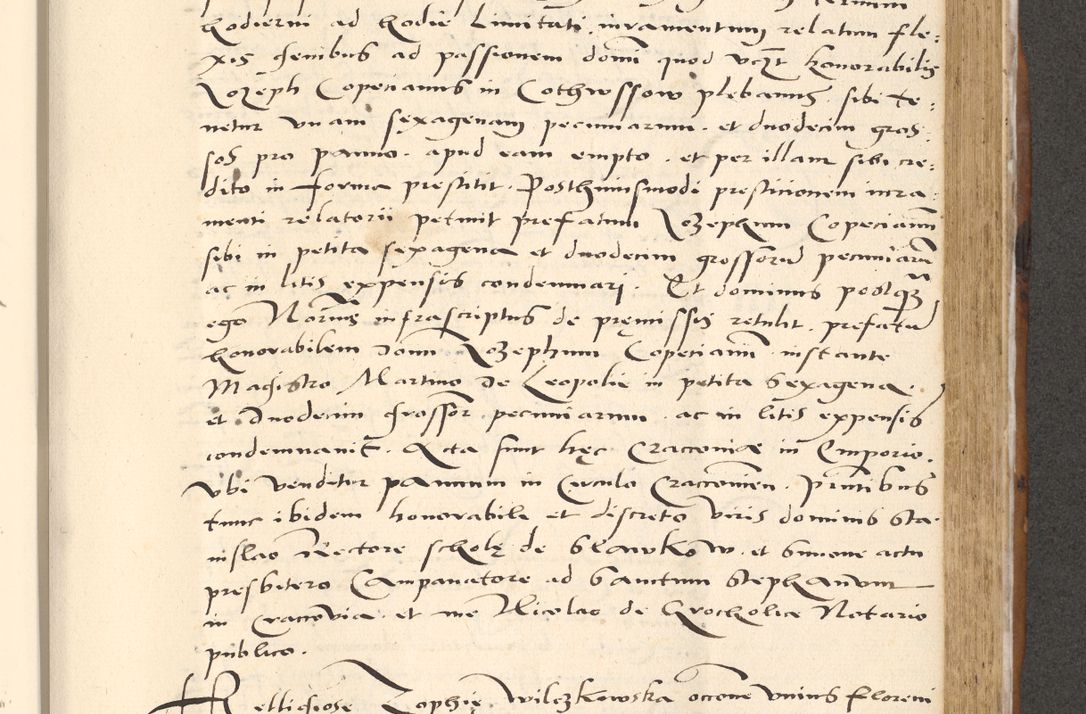 hodierni ad hodie Limitati. iuramentum relatum fle:
xis genibus ad passionem domi quod vczt honorabilis
Jozeph Copecianus in Cothwssow plebanus. sibi te:
netur vnam sexagenam pecuniarum. et duodecim gros:
sos pro panno. apud eam empto. et per illam sibi cre:
dito in forma prestitit. Posthuiusmodi presticionem iura
menti relatorii petiuit prefatum Jozephum Copecianum
sibi in petita sexagena et duodecim grossorum pecuniarum
ac in litis expensis condemnari. Et dominus postqm
ego Norius infrascriptus de premissis retulit. prefatum
honorabilem Domi Jozephum Copecianum instante
Magistro Martino de Leopolie in petita Sexagena.
et Duodecim grossor. pecuniarum. ac in litis expensis
condemnauit. Acta sunt hęc Cracouiæ in Emporio.
vbi venditur pannum in Circulo Cracouien. Pntibus
tunc ibidem honorabile et discreto viris dominis Sta-
nislao Rectore scholę de Slawkow. et Simone actu
presbitero Campanatore ad Sanctum Stephanum
in Cracouia. et me Nicolao de Grocholice Notario
publico.
Relligiose Zophię Wilczkowska occone vnius floreni